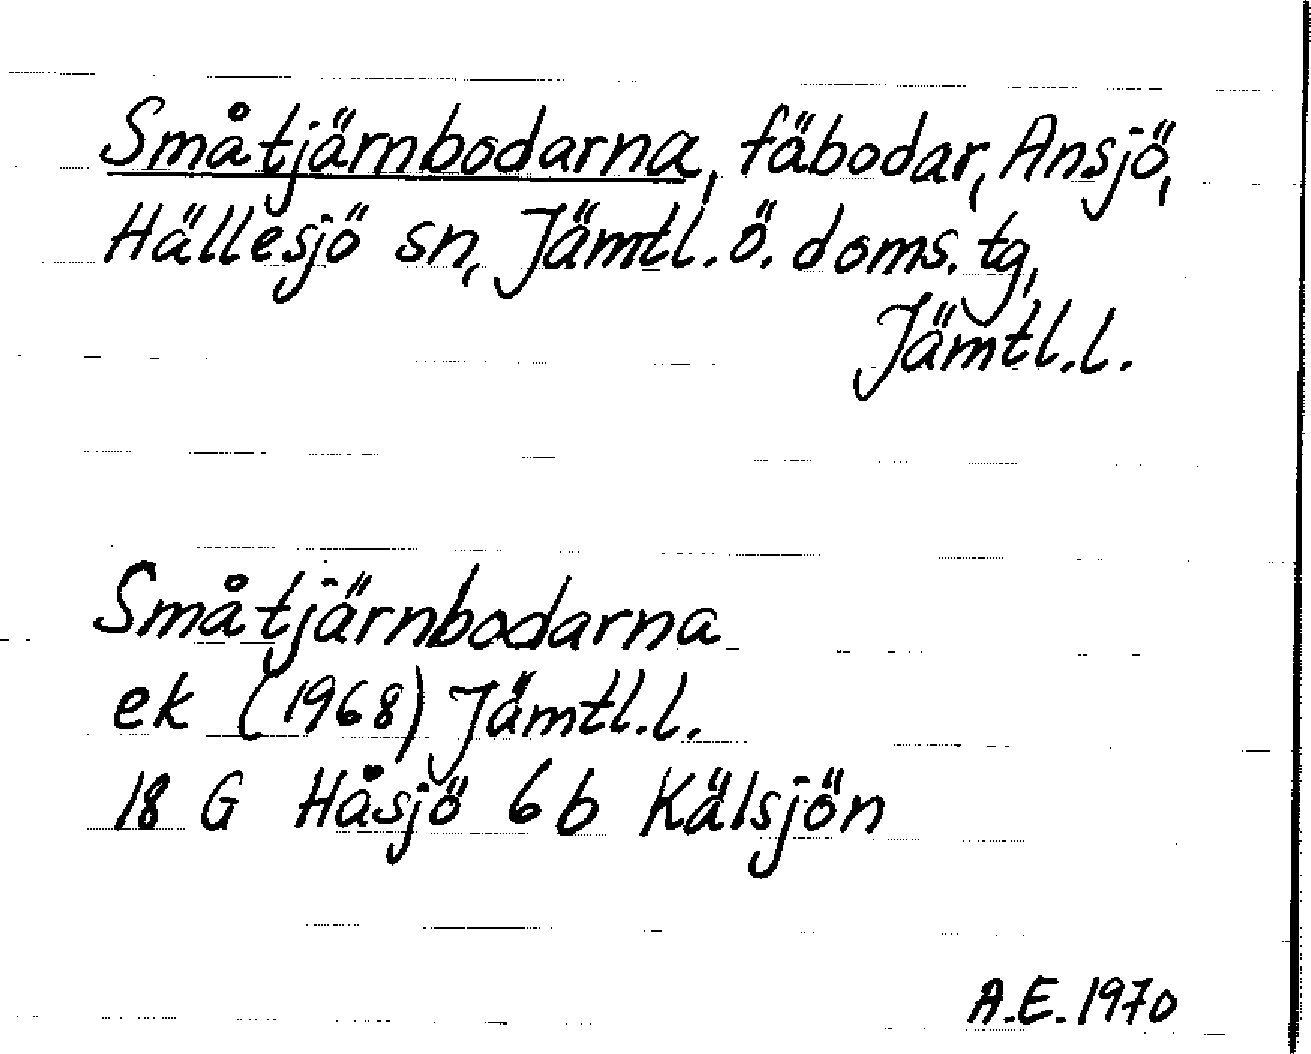 Småtjärnbodarna, fäbodar, Ansjö,
Hällesjö sn, Jämtl. ö. doms. tg,
Jämtl. l.
Småtjärnbodarna
ek (1968) Jämtl. l.
18 G Håsjö 6 b Kälsjön
A.E. 1970